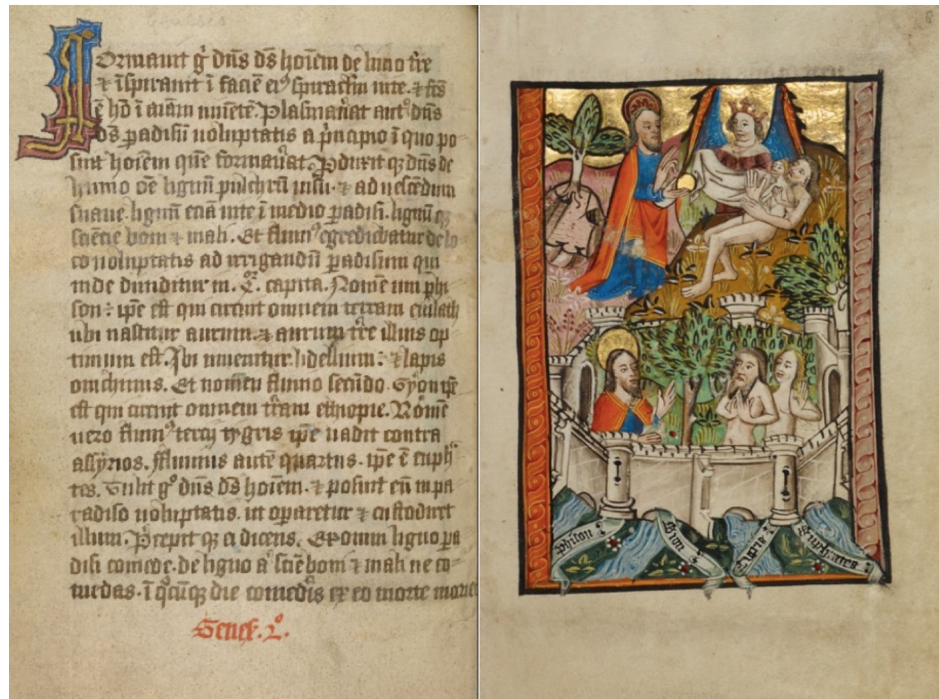 Formauit gͥ dn̄s ds̄ hoīem de limo tr̄e
⁊ īspirauit ī faciē eiꝰ spiraclm̄ uite. ⁊ fcs̄
ē hō ī aīam uiuētē. Plasmau̾at aut̄ dn̄s
ds̄ ꝑadisū uoluptatis a pͥncipio ī quo po
suit hoīem quē formau̾at. Pduxit qꝫ dn̄s de
humo oē lignū pulchrū uisu. ⁊ ad uescēdum
suaue. lignū eciā uite ī medio ꝑadisi. lignū qꝫ
sciēcie boni ⁊ mali. Et fluuiꝰ egrediebatur de lo
co uoluptatis ad irrigandū ꝑadisum qui
inde diuiditur in. capita. Nomē uni phi
son: ipē est qui circuit omnem terram euilath
ubi nascitur aurum. ⁊ aurum tr̄e illius op
timum est. Ibi inuenitur. bdellium: ⁊ lapis
onichinus. Et nomē fluuio secūdo. Gyon ipē
est qui circuit omnem tr̄am ethiopie. Nomē
uero fluuiꝰ tercij tygris ipē uadit contra
assyrios. Fluuius autē quartus. ipē ē euph̾
tes. Tulit gͦ dn̄s ds̄ hoīem. ⁊ posuit eū in pa
radiso uoluptatis. ut opͣretur ⁊ custodiret
illum. Precepit qꝫ ei dicens. Ex omni ligno ꝑa
disi comede. de ligno aͭ sciē boni ⁊ mali ne co
medas. ī qͦcūqꝫ die comed̾is ex eo morte morieris
Genes. 2ͦ.
phison
Gion
Tigris
Euphrates